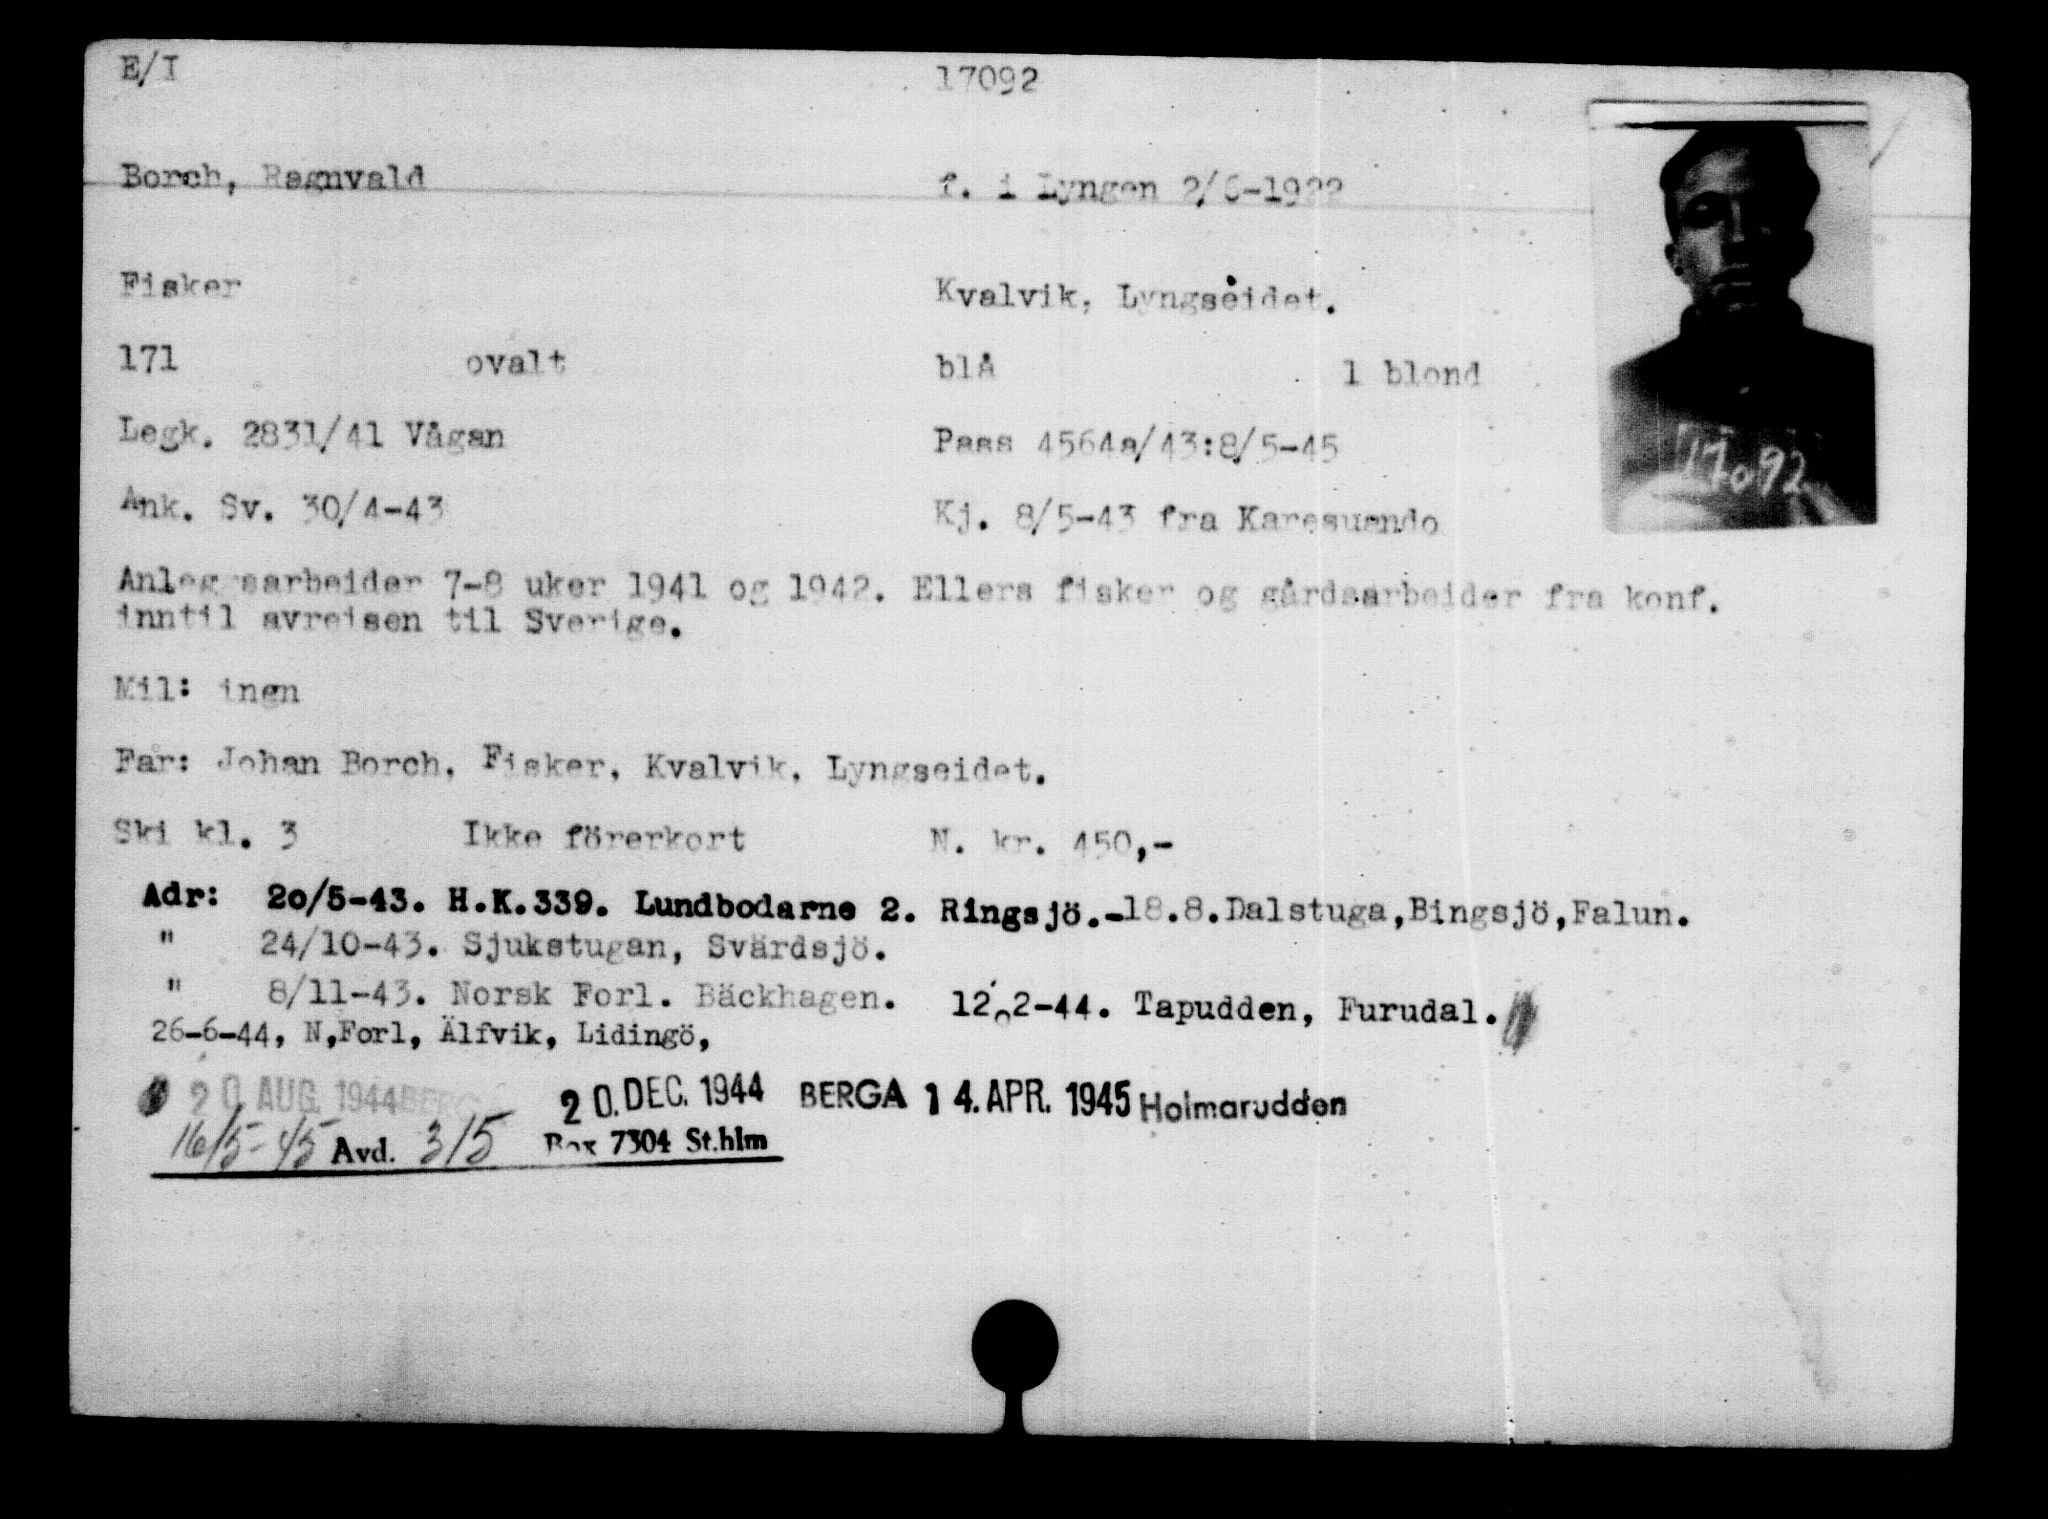 E/I 17092
Borch, Ragnvald f. i Lyngen 2/6-1922
Fisker Kvalvik, Lyngseidet.
171 ovalt blå l blond
Legk. 2831/41 Vågan Pass 4564a/43:8/5-45
Ank. Sv. 30/4-43 Kj. 8/5-43 fra Karesuando
17092
Anleggsarbeider 7-8 uker 1941 og 1942. Ellers fisker og gårdsarbeider fra konf.
inntil avreisen til Sverige.
Mil: ingn
Far: Johan Borch, Fisker, Kvalvik, Lyngseidet.
Ski kl. 3 Ikke förerkort N. kr. 450,-
Adr: 2o/5-43. H.K.339. Lundbodarne 2. Ringsjö.-18.8.Dalstuga,Bingsjö,Falun.
" 24/10-43. Sjukstugan, Svärdsjö.
" 8/11-43. Norsk Forl. Bäckhagen. 12.2-44. Tapudden, Furudal.
26-6-44, N,Forl, Älfvik, Lidingö,
20 AUG. 1944 BERGA 20. DEC. 1944 BERGA 14. APR. 1945 Holmarudden
16/5-45 Avd. 315 Box 7304 St.hlm